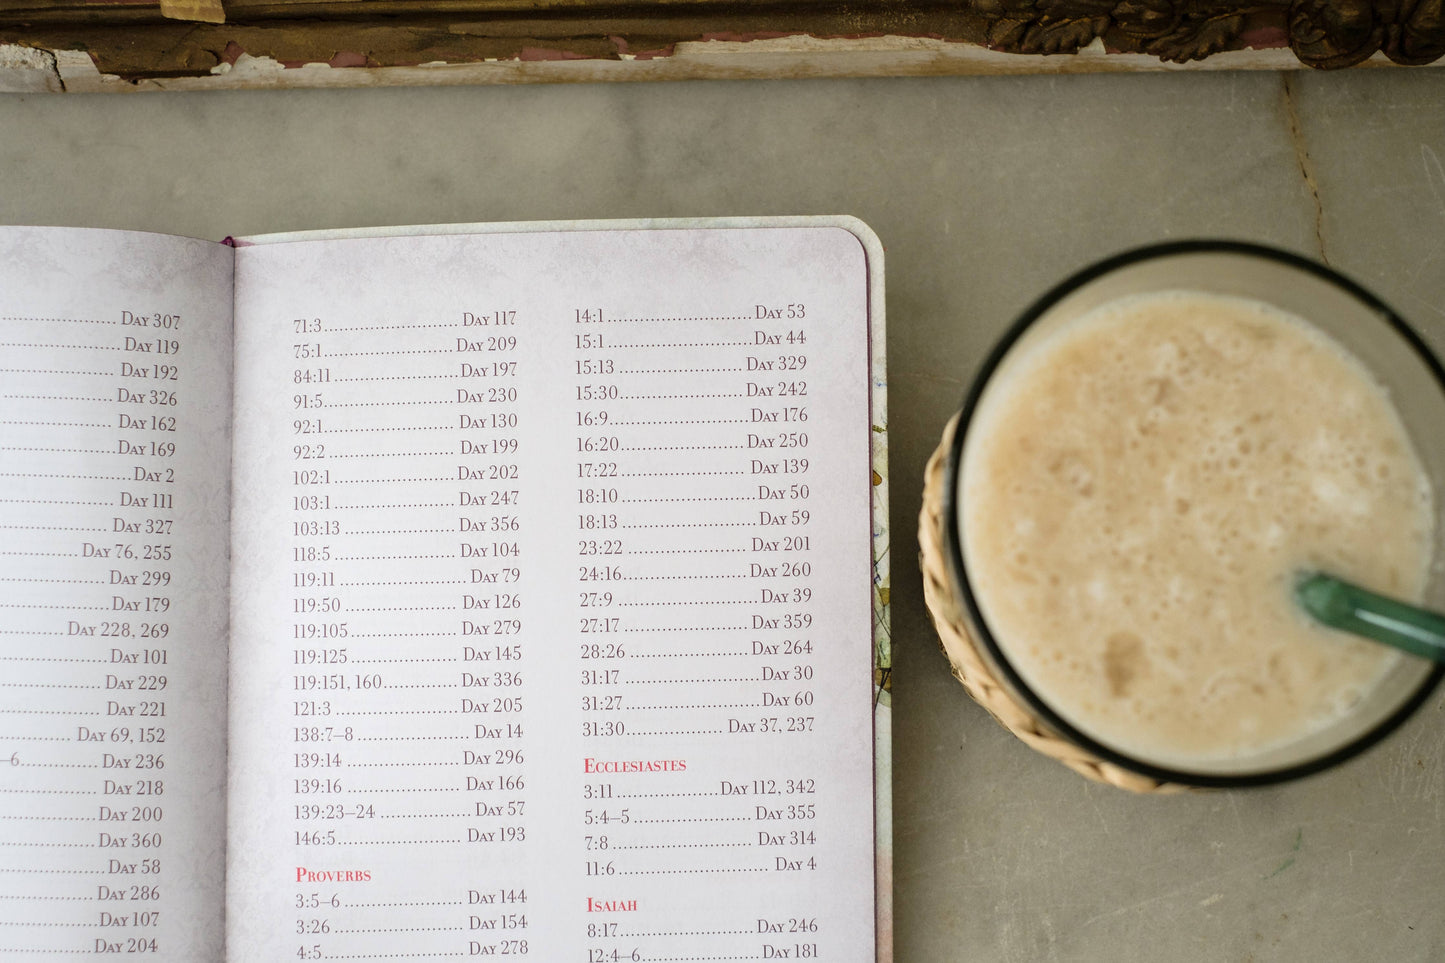 Day 307
Day 119
Day 192
Day 326
Day 162
Day 169
Day 2
Day 111
Day 327
Day 76, 255
Day 299
Day 179
Day 228, 269
Day 101
Day 229
Day 221
Day 69, 152
–6 Day 236
Day 218
Day 200
Day 360
Day 58
Day 286
Day 107
Day 204
71:3 Day 117
75:1 Day 209
84:11 Day 197
91:5 Day 230
92:1 Day 130
92:2 Day 199
102:1 Day 202
103:1 Day 247
103:13 Day 356
118:5 Day 104
119:11 Day 79
119:50 Day 126
119:105 Day 279
119:125 Day 145
119:151, 160 Day 336
121:3 Day 205
138:7–8 Day 14
139:14 Day 296
139:16 Day 166
139:23–24 Day 57
146:5 Day 193
Proverbs
3:5–6 Day 144
3:26 Day 154
4:5 Day 278
14:1 Day 53
15:1 Day 44
15:13 Day 329
15:30 Day 242
16:9 Day 176
16:20 Day 250
17:22 Day 139
18:10 Day 50
18:13 Day 59
23:22 Day 201
24:16 Day 260
27:9 Day 39
27:17 Day 359
28:26 Day 264
31:17 Day 30
31:27 Day 60
31:30 Day 37, 237
Ecclesiastes
3:11 Day 112, 342
5:4–5 Day 355
7:8 Day 314
11:6 Day 4
Isaiah
8:17 Day 246
12:4–6 Day 181